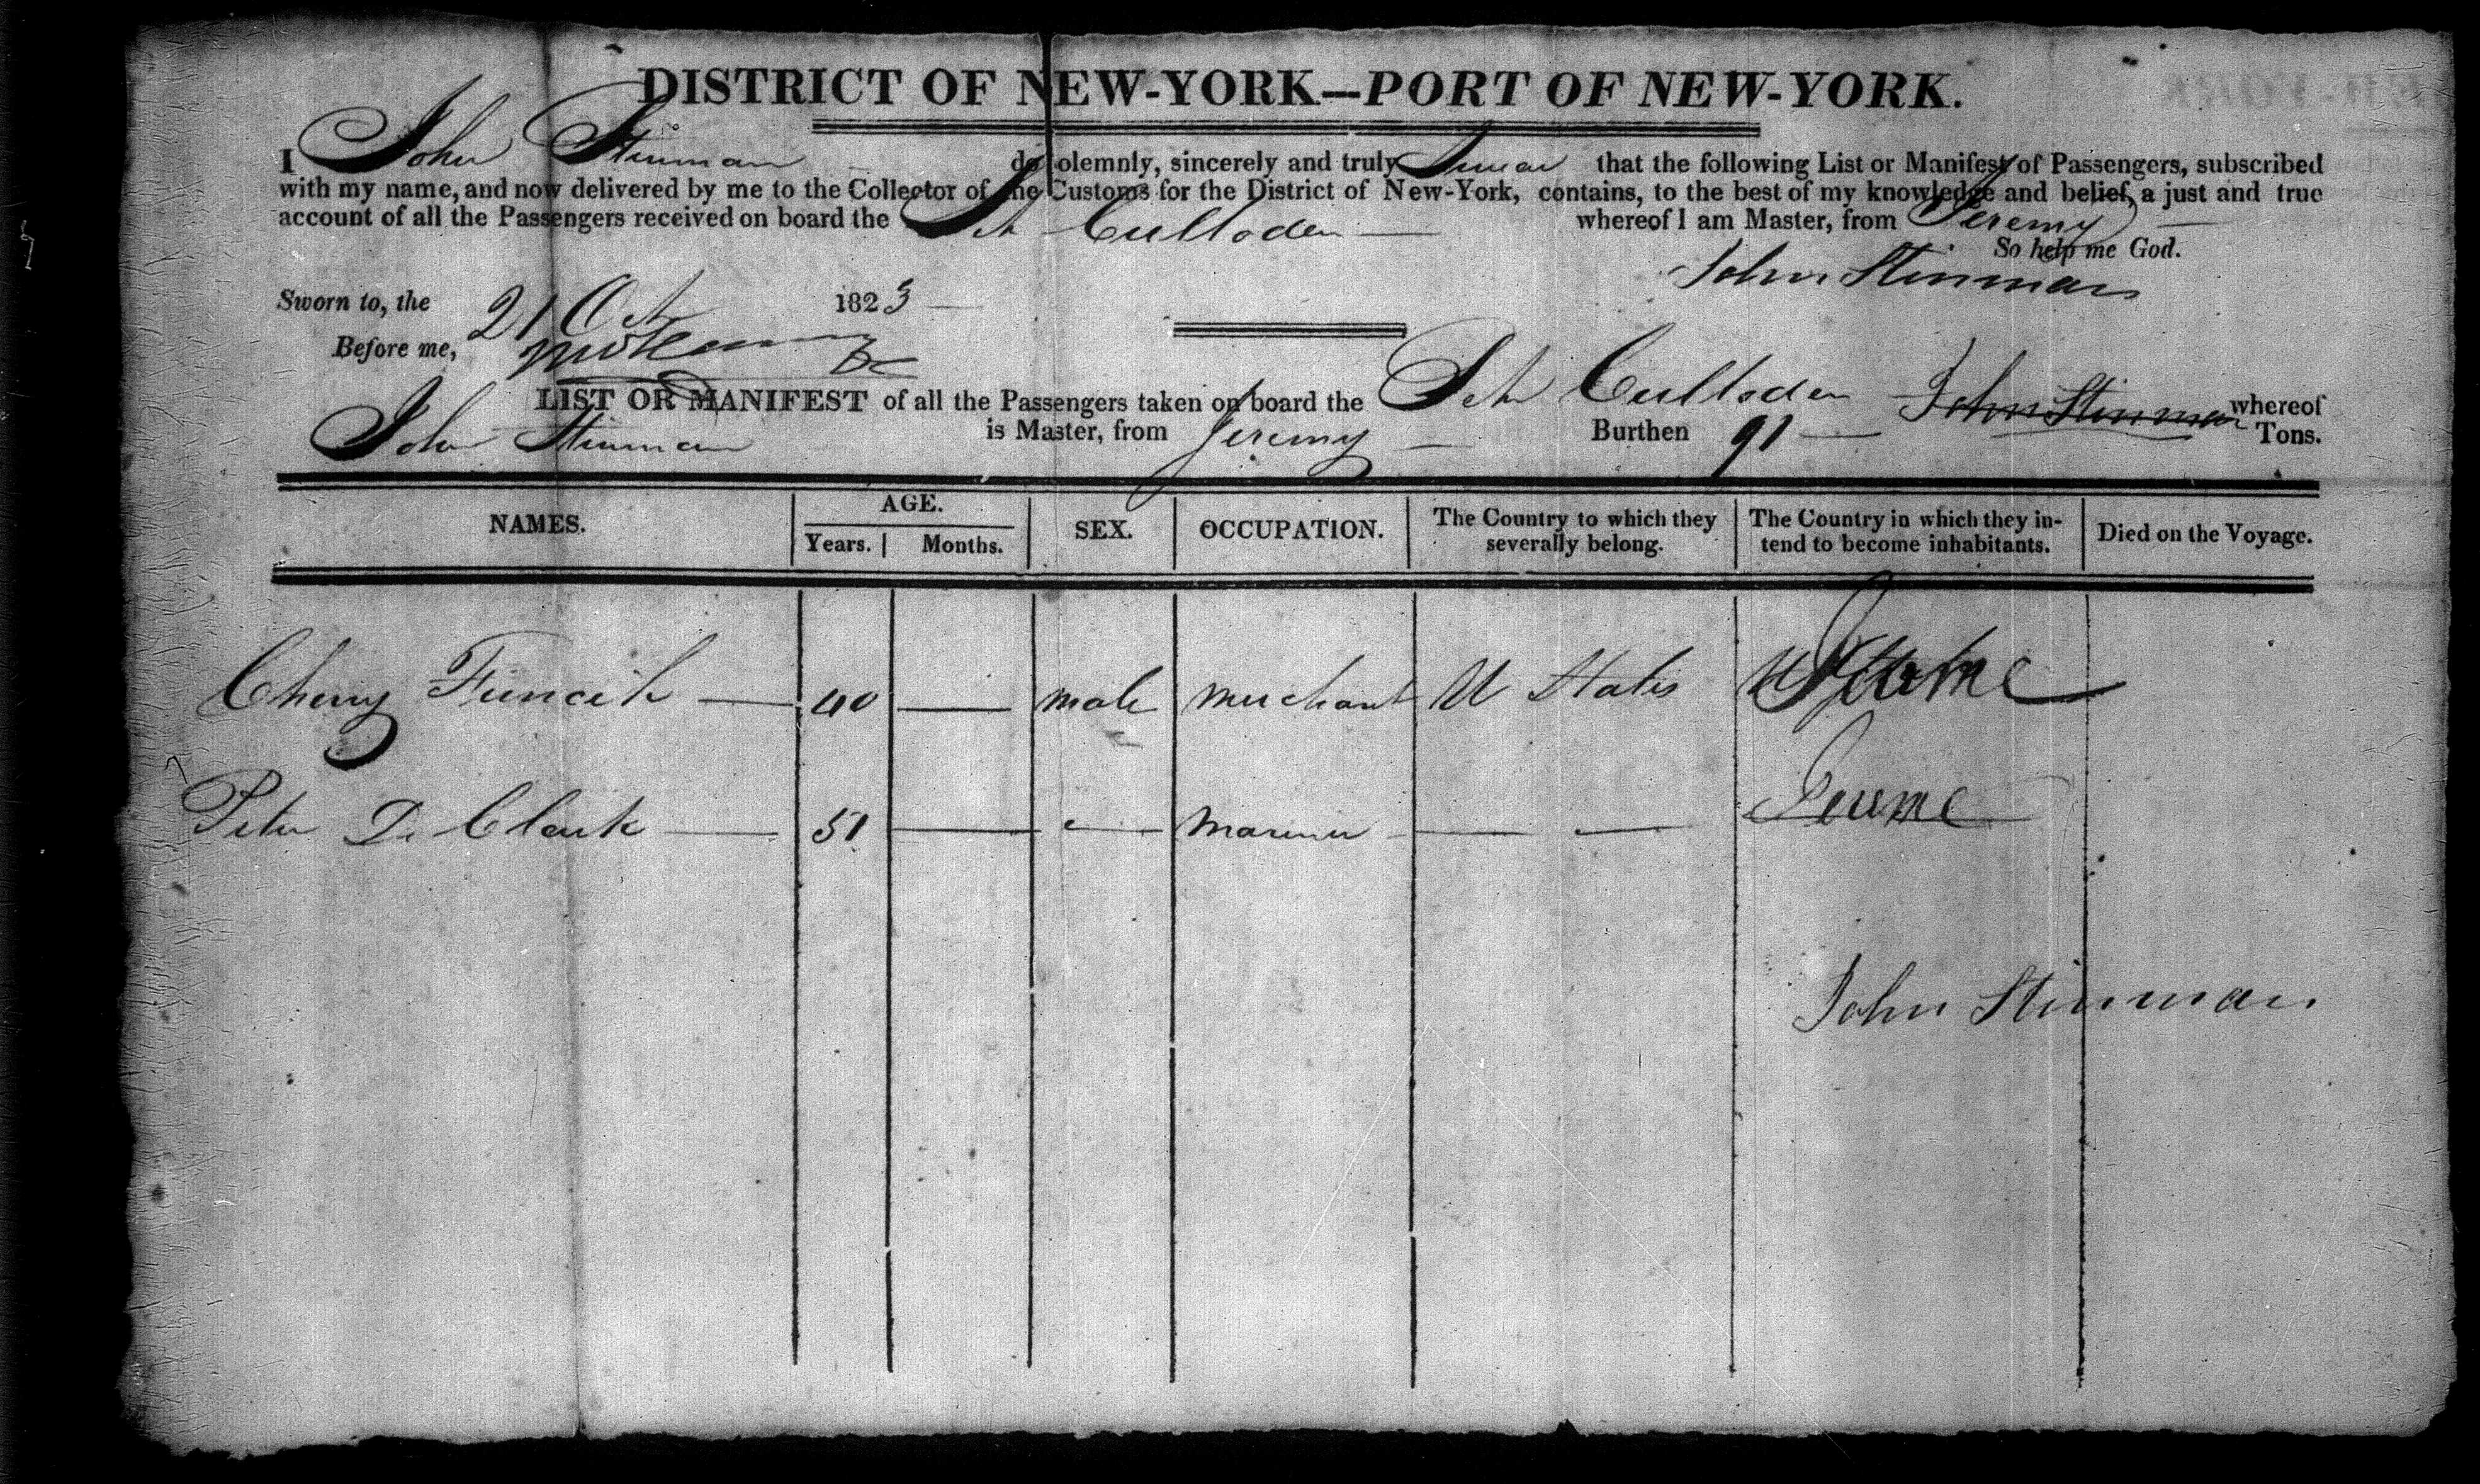 DISTRICT OF NEW-YORK—PORT OF NEW-YORK.
I John Stinman do solemnly, sincerely and truly Swear that the following List or Manifest of Passengers, subscribed
with my name, and now delivered by me to the Collector of the Customs for the District of New-York, contains, to the best of my knowledge and belief, a just and true
account of all the Passengers received on board the Sch Culloden — whereof I am Master, from Jeremy —
So help me God.
John Stinman
Sworn to, the 21 Oct 1823 —
Before me,
LIST OR MANIFEST of all the Passengers taken on board the Schr Cullsden John Stinman whereof
John Stinman is Master, from Jeremy — Burthen 91 — Tons.
NAMES. AGE. SEX. OCCUPATION. The Country to which they severally belong. The Country in which they intend to become inhabitants. Died on the Voyage.
Years. Months.
Cherry 40 — male merchant U States
Peter D. Clark — 51 — — mariner — —
John Stinman